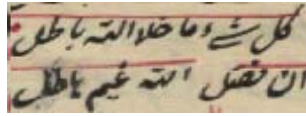 كل شے ما خلا الله باطل
ان فضل الله غيم هاطل